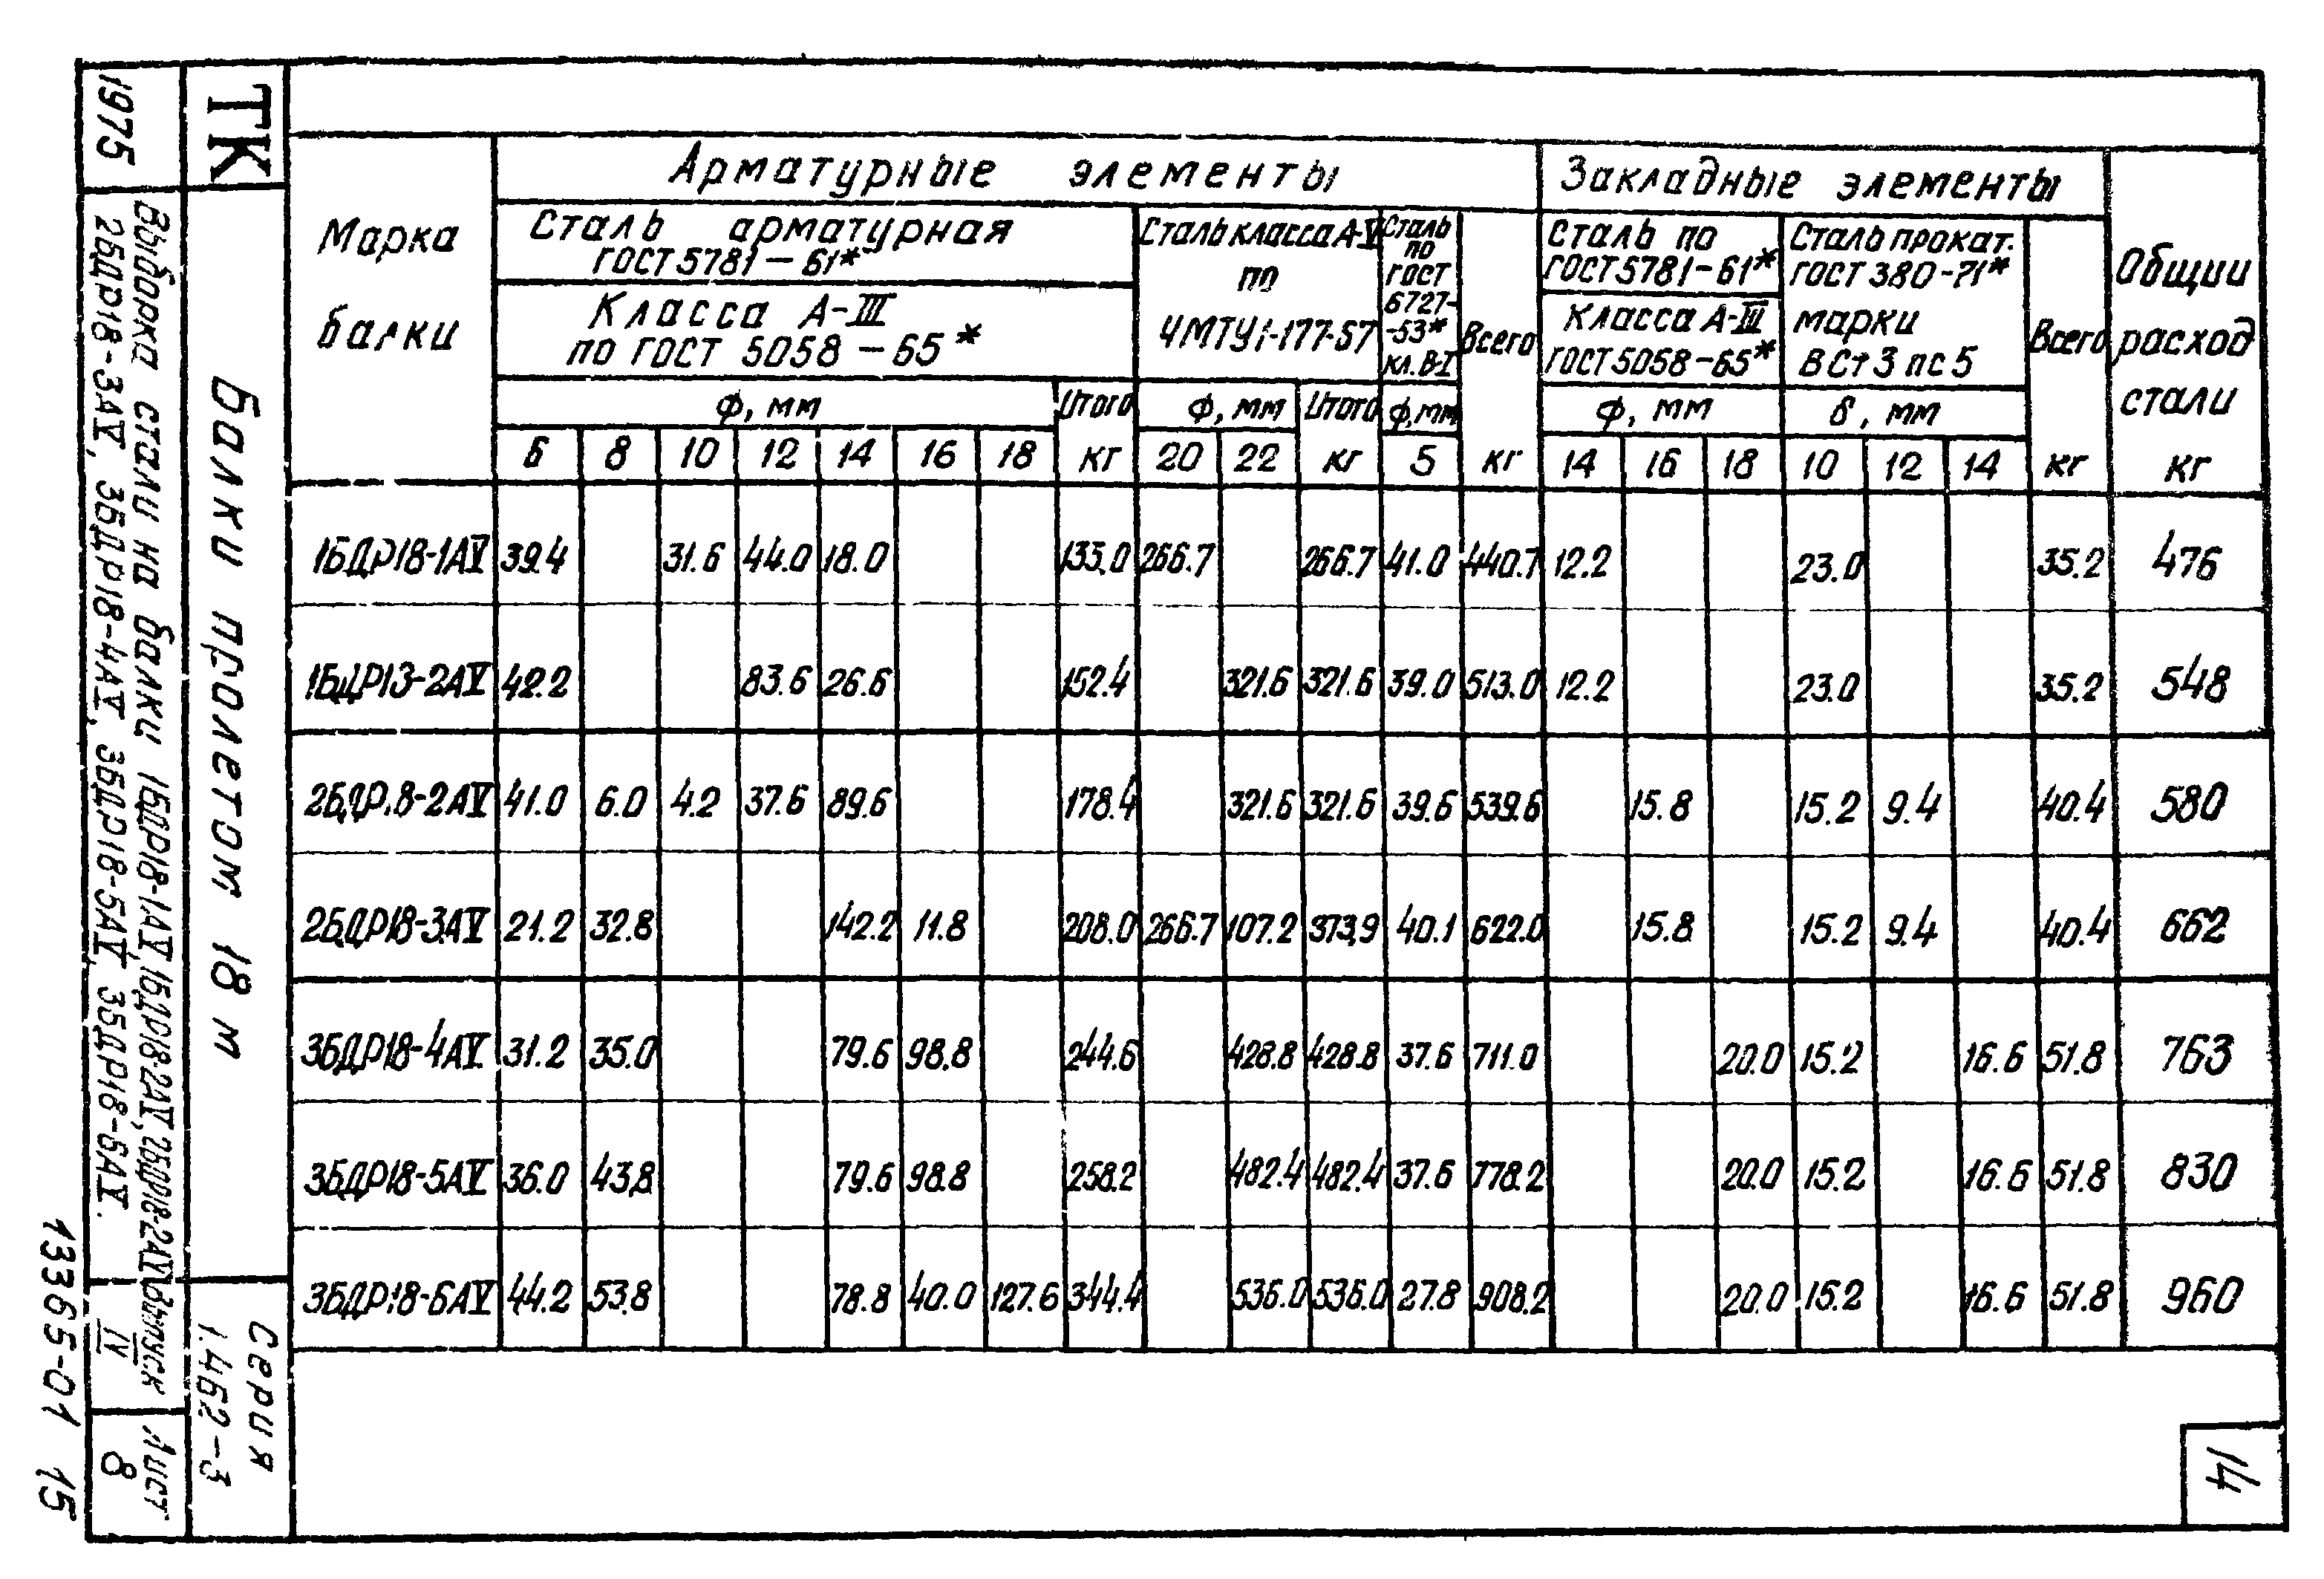 Арматурные элементы Закладные элементы
Марка балки
Сталь арматурная
ГОСТ 5781-61*
Класса А-III
по ГОСТ 5058-65*
Сталь класса А-V
по
ЧМТУ1-177-67
Сталь
по
ГОСТ
6727-
-53*
кл. В-I
Всего
Сталь по
ГОСТ 5781-61*
Класса А-III
ГОСТ 5058-65*
Сталь прокат.
ГОСТ 380-71*
марки
ВСт3пс5
Всего
Общий
расход
стали
ф, мм Итого ф, мм Итого ф, мм ф, мм δ, мм
6 8 10 12 14 16 18 кг 20 22 кг 5 кг 14 16 18 10 12 14 кг кг
1БДР18-1АV 39.4 31.6 44.0 18.0 133.0 266.7 266.7 41.0 440.7 12.2 23.0 35.2 476
1БДР13-2АV 42.2 83.6 26.6 152.4 321.6 321.6 39.0 513.0 12.2 23.0 35.2 548
2БДР18-2АV 41.0 6.0 4.2 37.6 89.6 178.4 321.6 321.6 39.6 539.6 15.8 15.2 9.4 40.4 580
2БДР18-3АV 21.2 32.8 142.2 11.8 208.0 266.7 107.2 373,9 40.1 622.0 15.8 15.2 9.4 40.4 662
3БДР18-4АV 31.2 35.0 79.6 98.8 244.6 428.8 428.8 37.6 711.0 20.0 15.2 16.6 51.8 763
3БДР18-5АV 36.0 43,8 79.6 98.8 258.2 482.4 482.4 37.6 778.2 20.0 15.2 16.6 51.8 830
3БДР18-6АV 44.2 53.8 78.8 40.0 127.6 344.4 536.0 536.0 27.8 908.2 20.0 15.2 16.6 51.8 960
ТК
1975
Балки пролетом 18 м
Выборка стали на балки 1БДР18-1АV, 1БДР18-2АV, 2БДР18-2АV
2БДР18-3АV, 3БДР18-4АV, 3БДР18-5АV, 3БДР18-6АV.
Серия
1.462-3
Выпуск
IV
Лист
8
13365-01 15
14